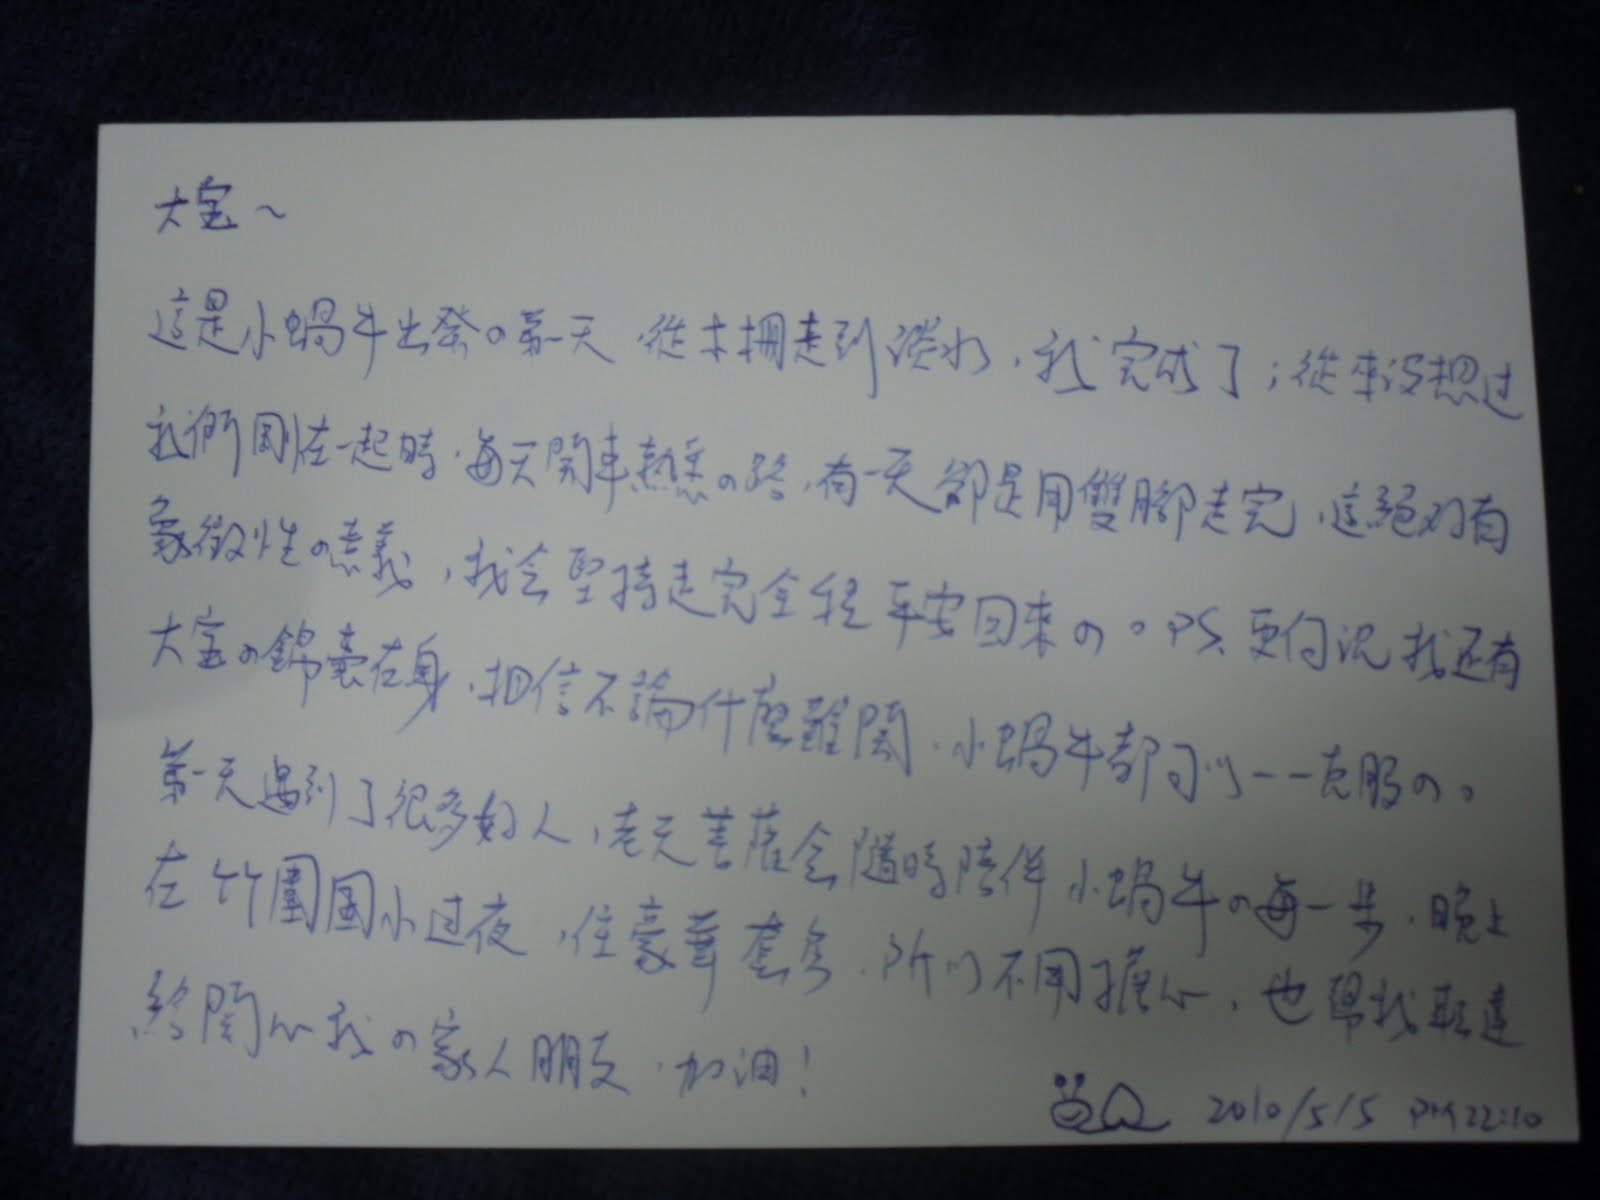 大宝~
這是小蝸牛出発の第一天,從木柵走到淡水,我完成了;從來没想过
我們剛在一起時,每天開車熟悉の路,有一天卻是用雙腳走完,這絕对有
象徵性の意義,我会堅持走完全程平安回來の。PS.更何況我还有
大宝の錦囊在身,相信不論什麼難関,小蝸牛都可以一一克服の。
第一天遇到了很多好人,老天菩薩会隨時陪伴小蝸牛の每一步,晚上
在竹圍國小过夜,住豪華套房,所以不用擔心,也幫我転達
給関心我の家人朋友,加油!
2010/5/15 PM 22:10